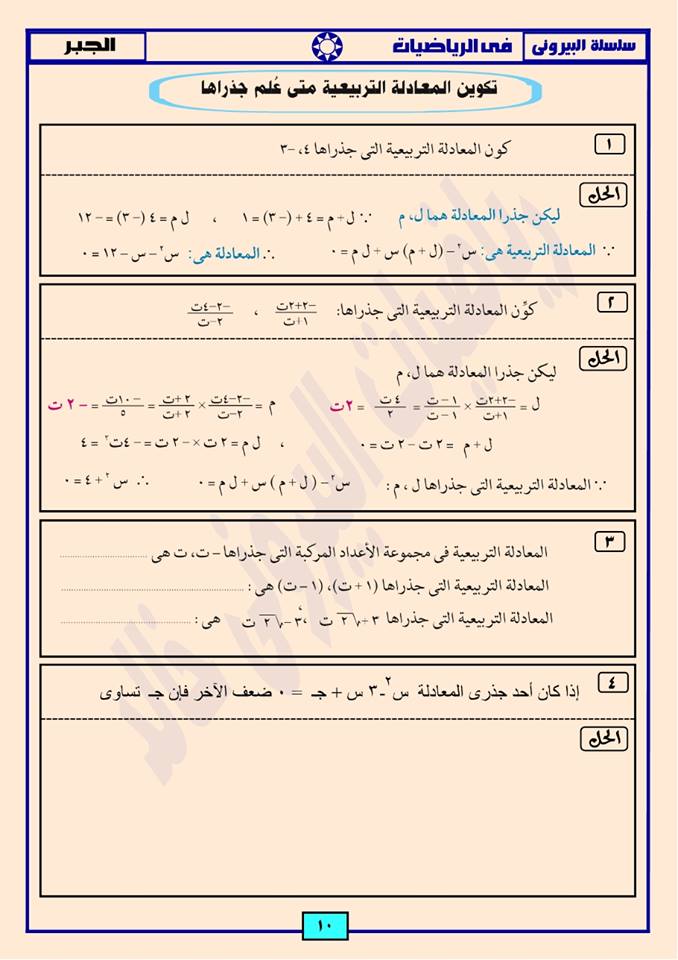 سلسلة البيرونى فى الرياضيات الجبر
تكوين المعادلة التربيعية متى عُلم جذراها
١ كون المعادلة التربيعية التى جذراها ٤، -٣
الحل
ليكن جذرا المعادلة هما ل، م ∵ ل + م = ٤ + (-٣) = ١ ، ل م = ٤ (-٣) = - ١٢
∵ المعادلة التربيعية هى: س٢ - (ل + م) س + ل م = ٠ ∴ المعادلة هى: س٢ - س - ١٢ = ٠
٢ كوِّن المعادلة التربيعية التى جذراها: (-٢+٢ت)/(١+ت) ، (-٢-٤ت)/(٢-ت)
الحل
ليكن جذرا المعادلة هما ل، م
ل = (-٢+٢ت)/(١+ت) × (١-ت)/(١-ت) = ٤ت/٢ = ٢ت م = (-٢-٤ت)/(٢-ت) × (٢+ت)/(٢+ت) = -١٠ت/٥ = - ٢ ت
ل + م = ٢ ت - ٢ ت = ٠ ، ل م = ٢ ت × - ٢ ت = - ٤ت٢ = ٤
∵ المعادلة التربيعية التى جذراها ل ، م : س٢ - ( ل + م ) س + ل م = ٠ ∴ س٢ + ٤ = ٠
٣ المعادلة التربيعية فى مجموعة الأعداد المركبة التى جذراها - ت، ت هى ..............................
المعادلة التربيعية التى جذراها (١ + ت)، (١ - ت) هى : ..............................
المعادلة التربيعية التى جذراها ٣ + √٢ ت ، ٣ - √٢ ت هى : ..............................
٤ إذا كان أحد جذرى المعادلة س٢ - ٣ س + جـ = ٠ ضعف الآخر فإن جـ تساوى
الحل
١٠